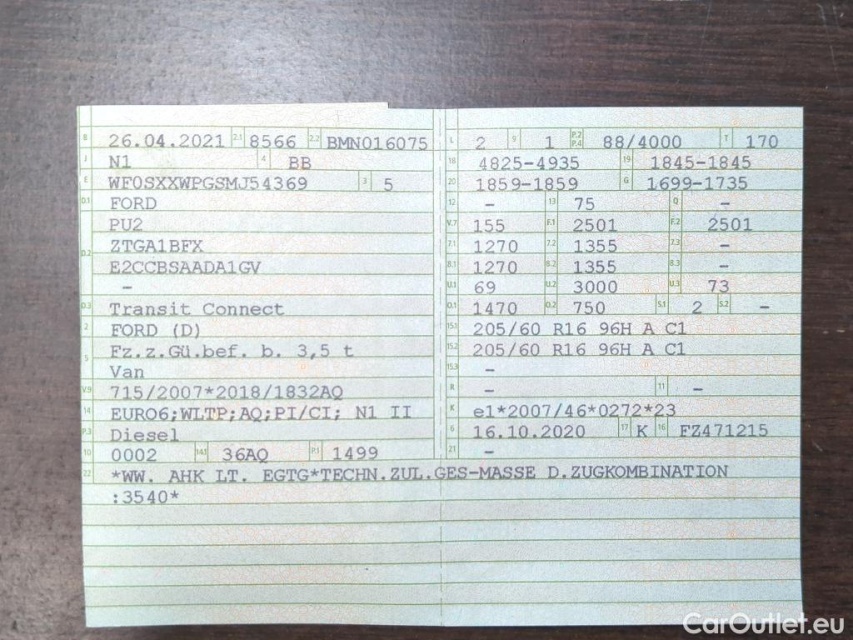 B 26.04.2021 2.1 8566 2.2 BMN016075
J N1 4 BB
E WF0SXXWPGSMJ54369 3 5
D.1 FORD
PU2
D.2 ZTGA1BFX
E2CCBSAADA1GV
–
D.3 Transit Connect
2 FORD (D)
5 Fz.z.Gü.bef. b. 3,5 t
Van
V.9 715/2007*2018/1832AQ
14 EURO6;WLTP;AQ;PI/CI; N1 II
P.3 Diesel
10 0002 14.1 36AQ P.1 1499
L 2 9 1 P.2 P.4 88/4000 T 170
18 4825-4935 19 1845-1845
20 1859-1859 G 1699-1735
12 – 13 75 Q –
V.7 155 F.1 2501 F.2 2501
7.1 1270 7.2 1355 7.3 –
8.1 1270 8.2 1355 8.3 –
U.1 69 U.2 3000 U.3 73
O.1 1470 O.2 750 S.1 2 S.2 –
15.1 205/60 R16 96H A C1
15.2 205/60 R16 96H A C1
15.3 –
R – 11 –
K e1*2007/46*0272*23
6 16.10.2020 17 K 16 FZ471215
21 –
22 *WW. AHK LT. EGTG*TECHN.ZUL.GES-MASSE D.ZUGKOMBINATION
:3540*
CarOutlet.eu